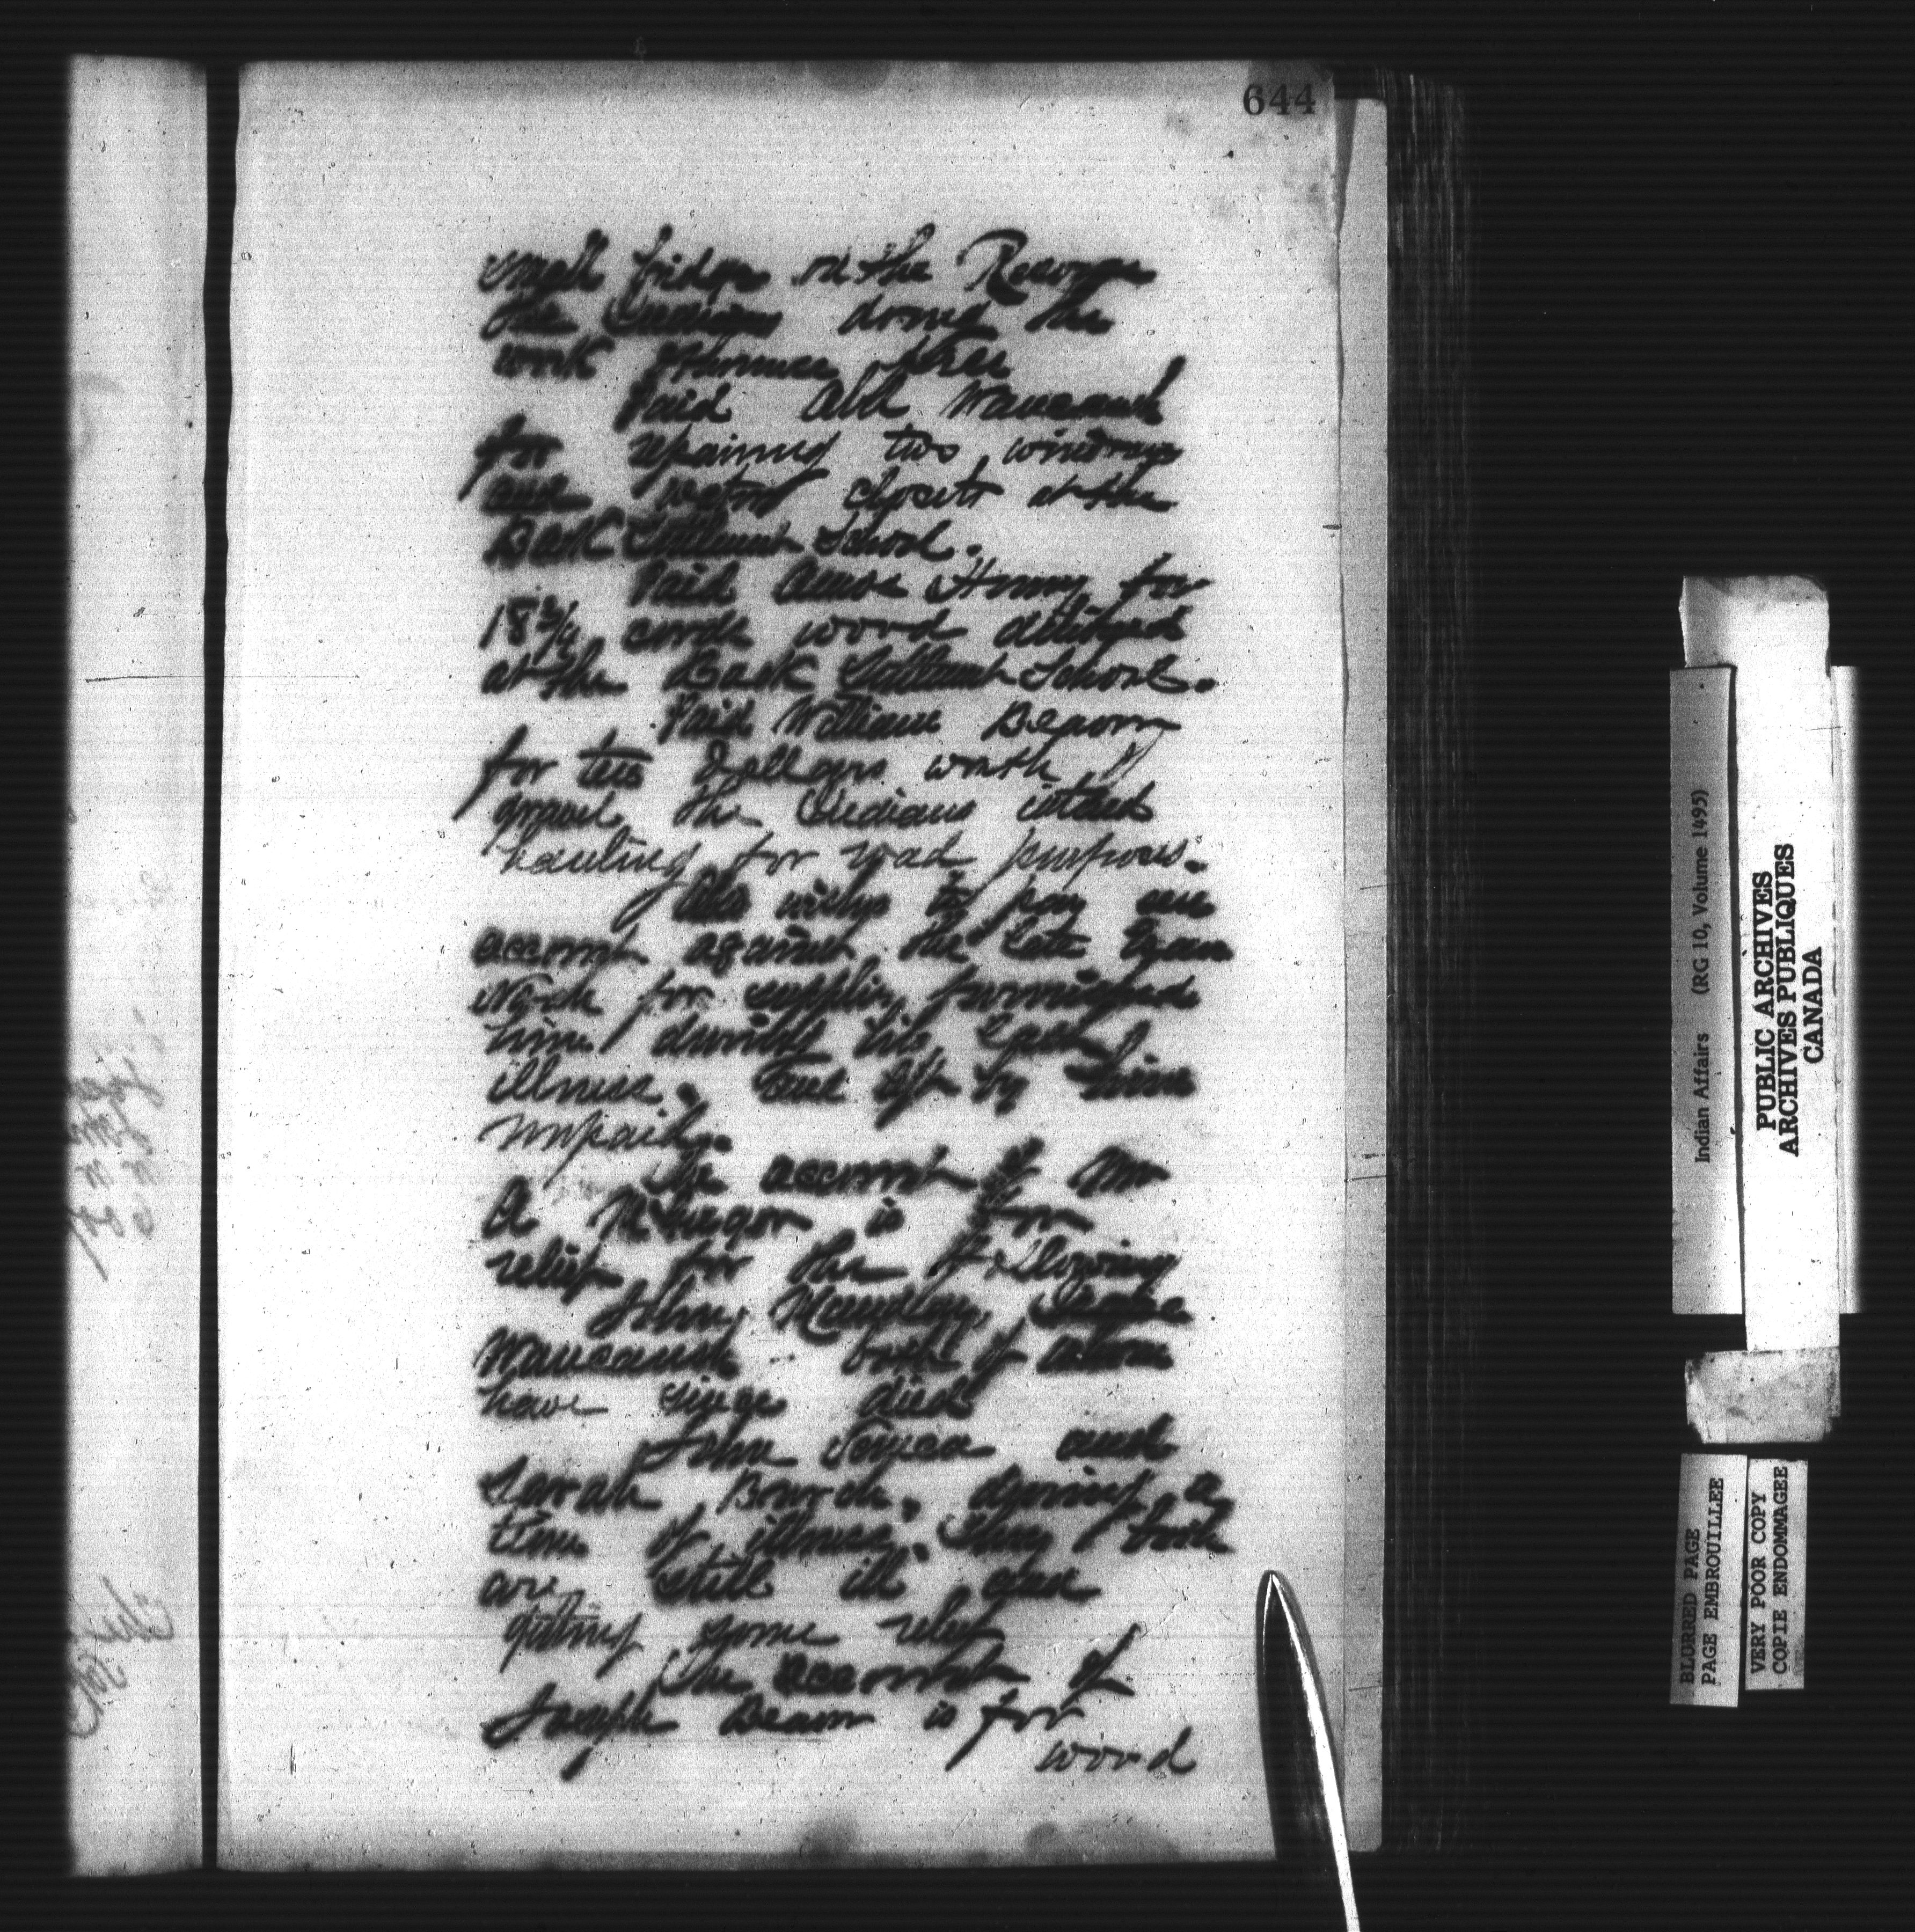 644
small bridge on the Reserve
the Indians doing the
work
Paid Abel Waucaush
for repairing two windows
and closets at the
Back Settlement School.
Paid Henry for
18 3/4 cords wood delivered
at the Back Settlement School.
Paid William Beaver
for ten Dollars worth of
gravel the Indians intend
hauling for road purposes.
Also wishes to pay an
account against the late
for supplies furnished
him during his last
illness. and left by him
unpaid.
The account of Mr
A McGregor is for
relief for the following
John
Waucaush both of whom
have since died
John and
Sarah during a
time of illness, they both
are still ill and
getting some relief
The account of
Joseph Beaver is for
wood
Indian Affairs (RG 10, Volume 1495)
PUBLIC ARCHIVES
ARCHIVES PUBLIQUES
CANADA
BLURRED PAGE
PAGE EMBROUILLEE
VERY POOR COPY
COPIE ENDOMMAGEE